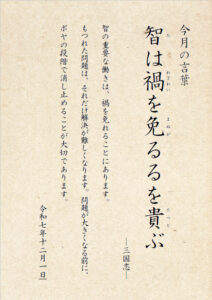 今月の言葉
智は禍を免るるを貴ぶ
―三国志―
智の重要な働きは、禍を免れることにあります。
もつれた問題は、それだけ解決が難しくなります。問題が大きくなる前に、
ボヤの段階で消し止めることが大切であります。
令和七年十二月一日